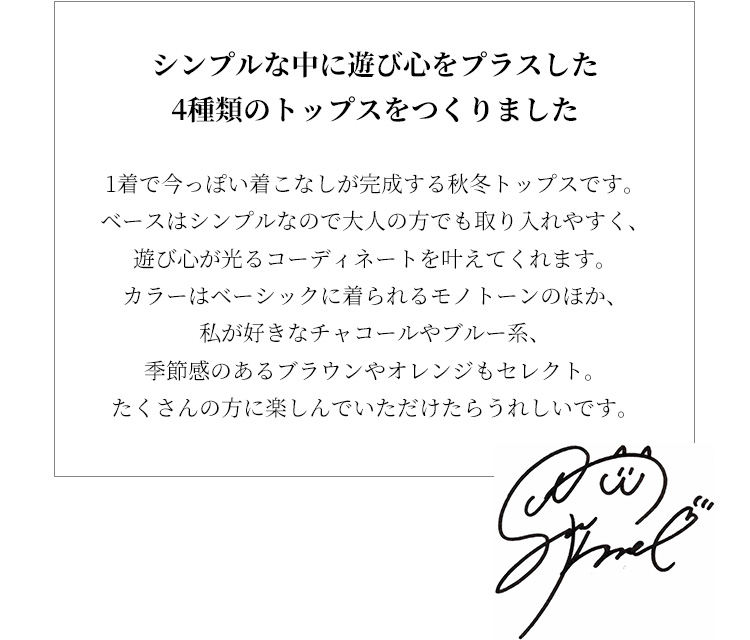 シンプルな中に遊び心をプラスした
4種類のトップスをつくりました
1着で今っぽい着こなしが完成する秋冬トップスです。
ベースはシンプルなので大人の方でも取り入れやすく、
遊び心が光るコーディネートを叶えてくれます。
カラーはベーシックに着られるモノトーンのほか、
私が好きなチャコールやブルー系、
季節感のあるブラウンやオレンジもセレクト。
たくさんの方に楽しんでいただけたらうれしいです。